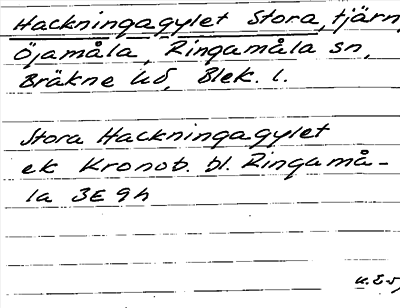 Hackningagylet Stora, tjärn,
Öjamåla, Ringamåla sn,
Bräkne hd, Blek. l.
Stora Hackningagylet
ek Kronob. bl. Ringamå-
la 3E 9h